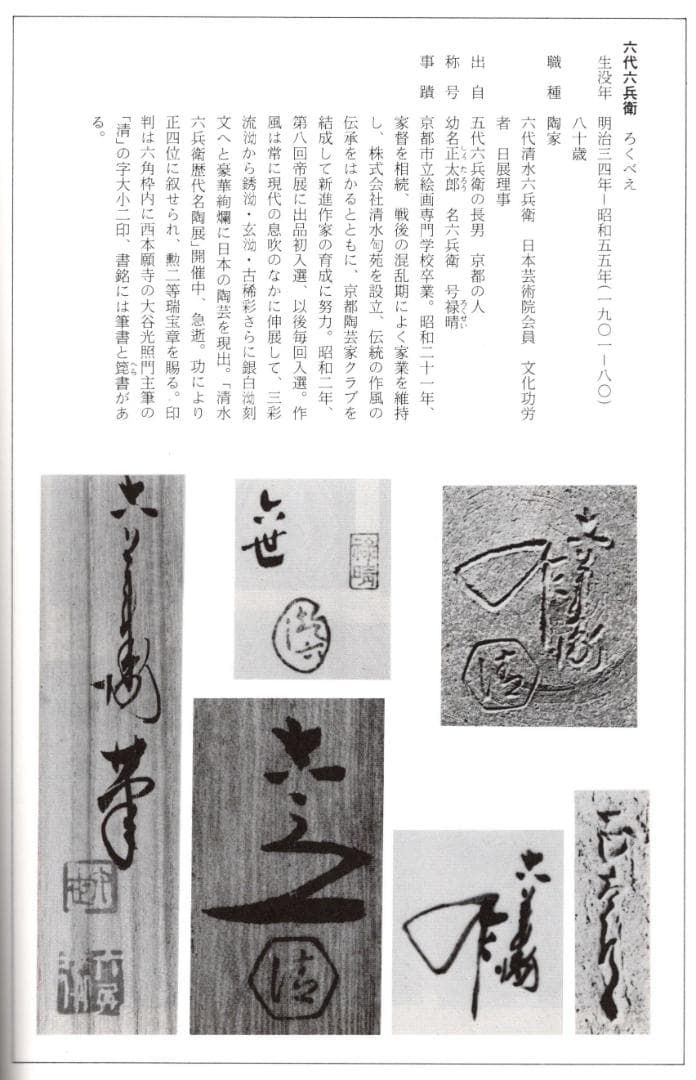 六代六兵衛　ろくべえ
生没年　明治三四年－昭和五五年(一九〇一－八〇)
八十歳
職　種　陶家
六代清水六兵衛　日本芸術院会員　文化功労
者　日展理事
出　自　五代六兵衛の長男　京都の人
称　号　幼名正太郎　名六兵衛　号禄晴
しょうたろう
ろくせい
事　蹟　京都市立絵画専門学校卒業。昭和二十一年、
家督を相続、戦後の混乱期によく家業を維持
し、株式会社清水陶苑を設立、伝統の作風の
伝承をはかるとともに、京都陶芸家クラブを
結成して新進作家の育成に努力。昭和二年、
第八回帝展に出品初入選、以後毎回入選。作
風は常に現代の息吹のなかに伸展して、三彩
流泑から銹泑・玄泑・古稀彩さらに銀白泑刻
文へと豪華絢爛に日本の陶芸を現出。「清水
六兵衛歴代名陶展」開催中、急逝。功により
正四位に叙せられ、勲二等瑞宝章を賜る。印
判は六角枠内に西本願寺の大谷光照門主筆の
「清」の字大小二印、書銘には筆書と箆書があ
へら
る。
六兵衛
清
六世
禄晴
清六
六兵衛筆
六世
六兵衛
六
清
六兵衛
正太郎